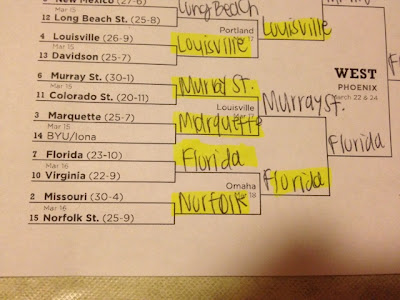 New Mexico (27-6)
Long Beach
Mar 15
12 Long Beach St. (25-8)
Portland
Louisville
4 Louisville (26-9)
Louisville
Mar 15
13 Davidson (25-7)
WEST
PHOENIX
March 22 & 24
6 Murray St. (30-1)
Murray St.
Mar 15
11 Colorado St. (20-11)
Louisville
Murray St.
3 Marquette (25-7)
Marquette
Mar 15
14 BYU/Iona
Florida
7 Florida (23-10)
Florida
Mar 16
10 Virginia (22-9)
Omaha
Florida
Mar 18
2 Missouri (30-4)
Norfolk
Mar 16
15 Norfolk St. (25-9)